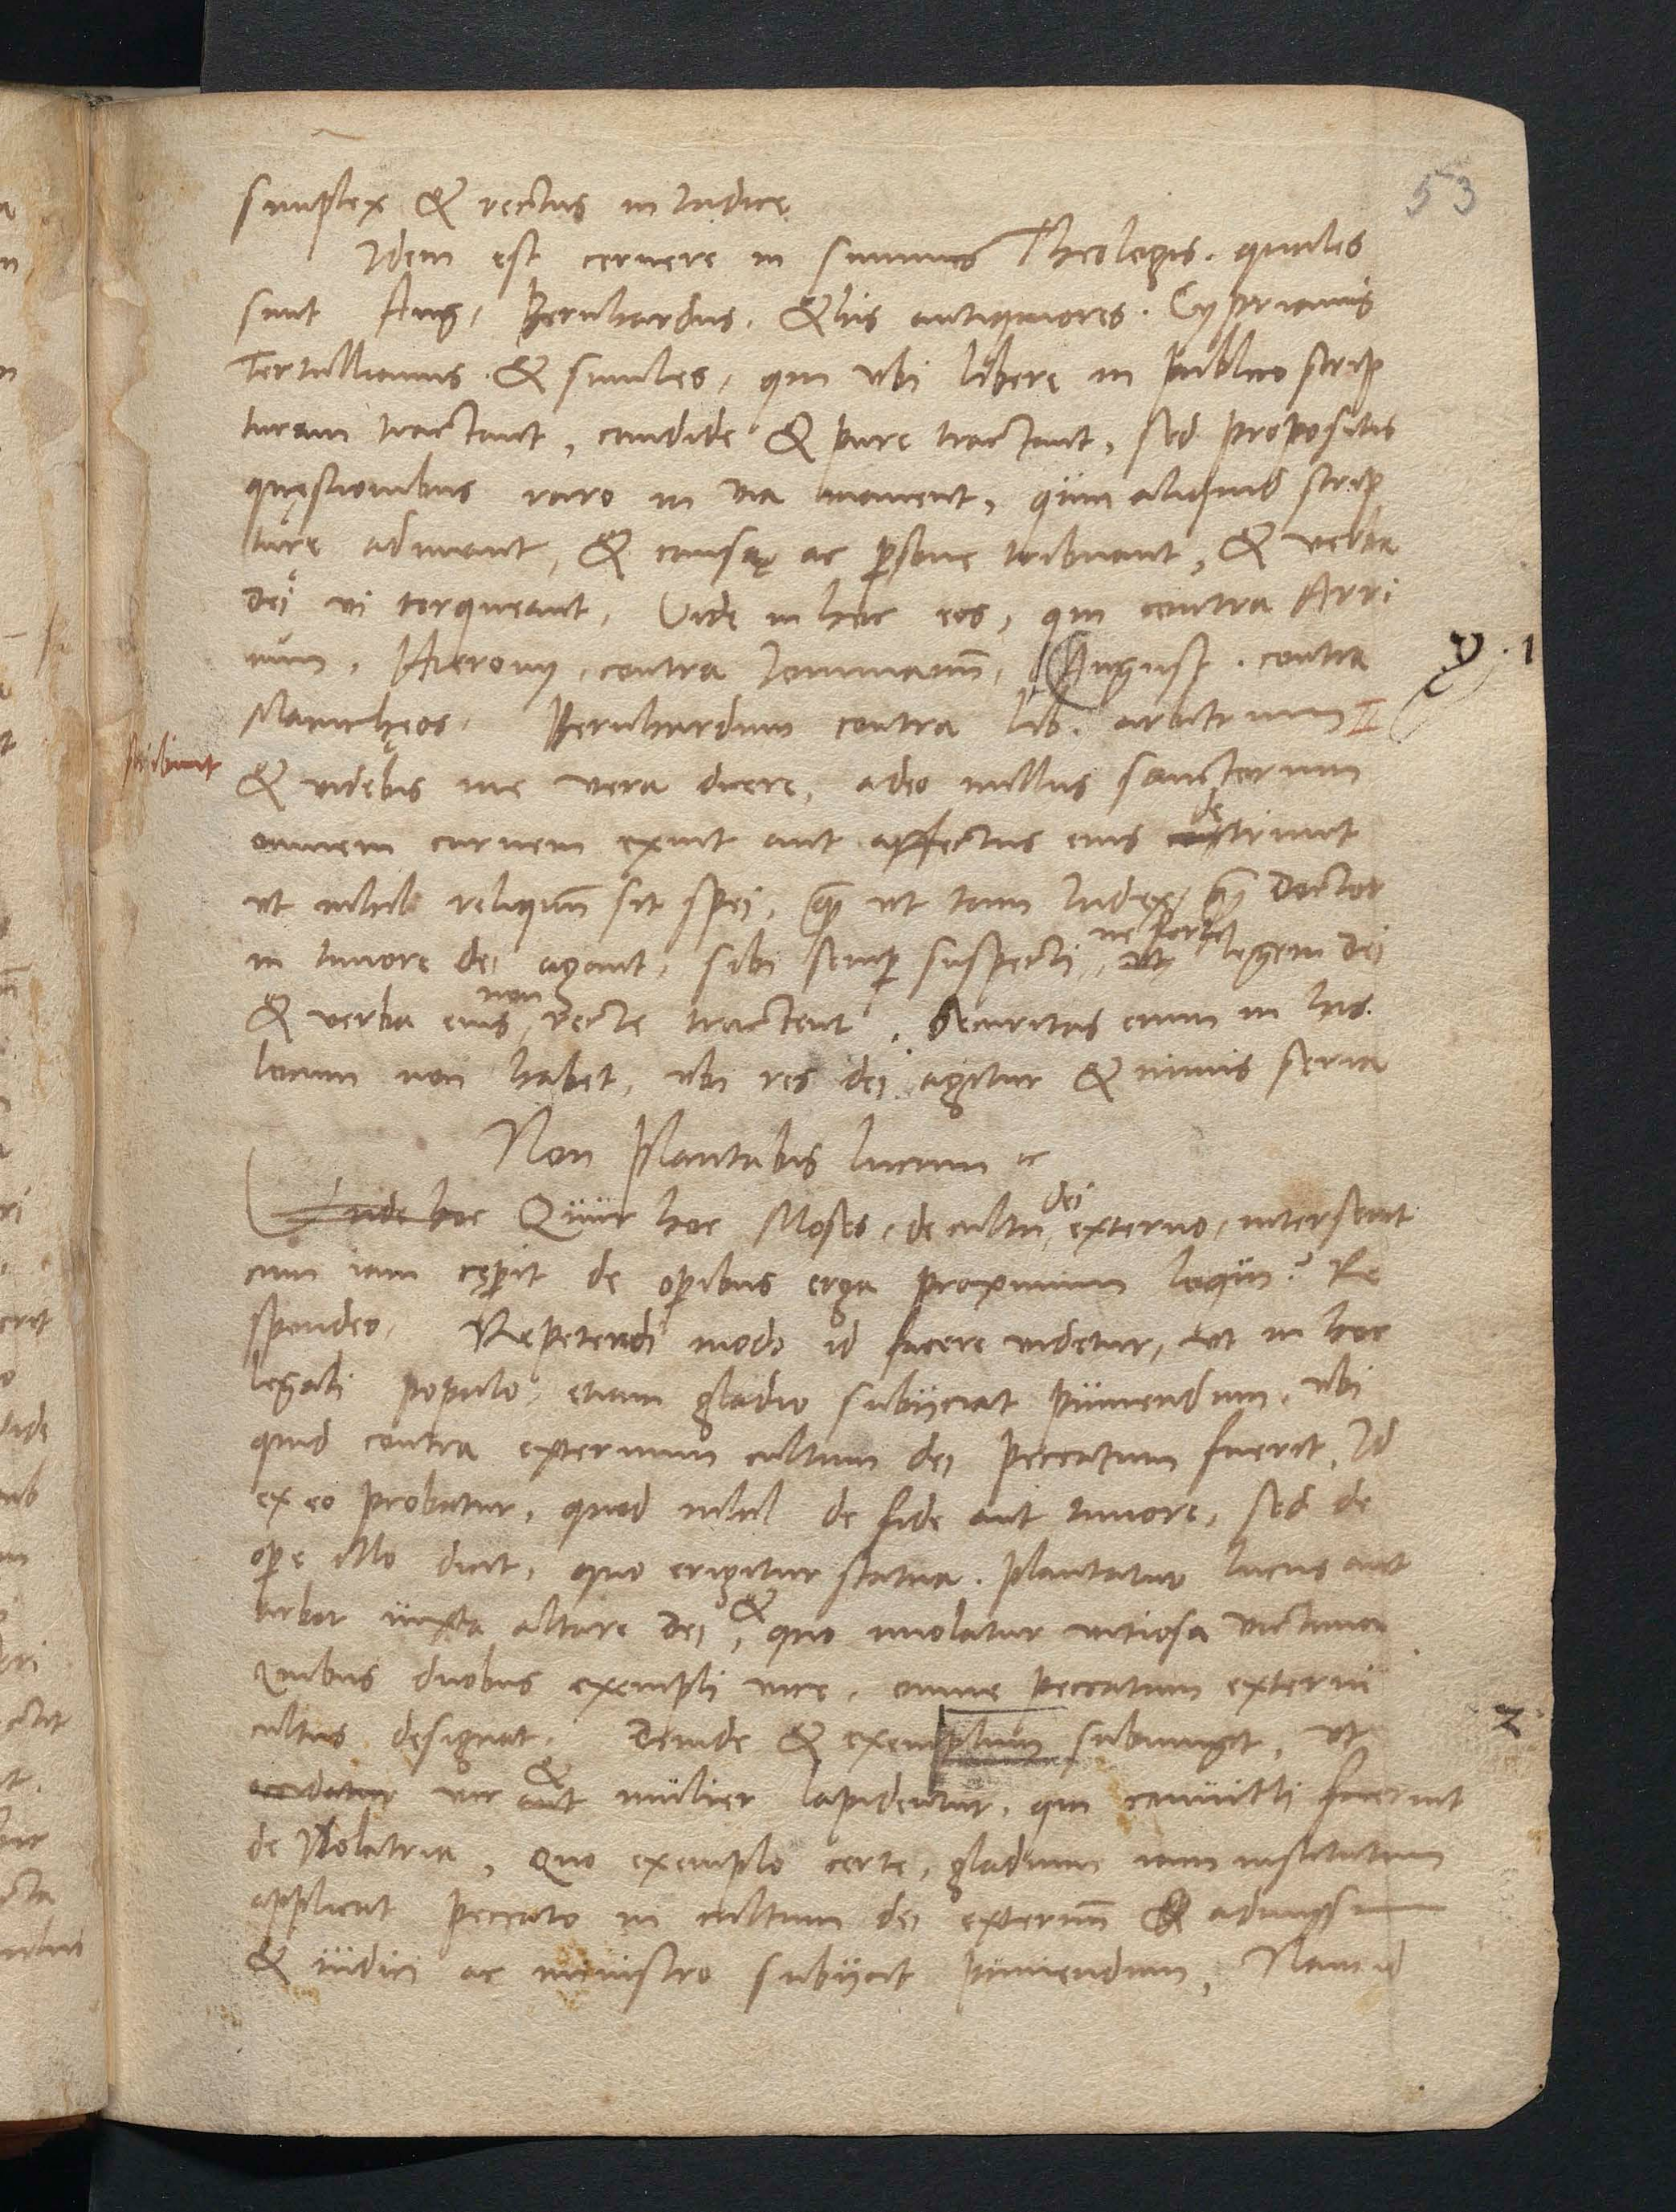 53
simplex & rectus in Iudice
Idem est cernere in summis Theologis. quales
sunt Aug, Bernhardus. & his antiquiores. Cyprianus
Tertullianus. & similes, qui ubi libere in publico scrip
turam tractant, candide & pure tractant, sed propositis
quęstionibus raro in via manent, quin aliquid scrip
turę adimant, & causę ac psone tribuant, & verba
dei vi torqueant. Vide in hoc eos, qui contra Arri
um, Hierony. contra Iouinianū, August. contra
y. 1
Manichęos. Bernhardum contra lib. arbitrium I
scribunt
& videbis me vera dicere, adeo nullus sanctorum
de
omnem carnem exuit aut affectus eius trivit
ut nihil reliquū sit spei, quā ut tam Iudex, quā Doctor
ne forte
in timore dei agant, sibi semp suspecti, ut legem Dei
non
& verba eius, recte tractent. Securitas enim in his
locum non habet, ubi res dei agitur & nimis seria
Non Plantabis lucum ꝛc
dei
Unde hoc Quur hoc Moses, de cultu, externo, interserit
cum iam cępit de opibus erga proximum loqui? Re
spondeo. Repetendi modo id facere videtur, ut in hoc
legali populo etiam gladio subijciat puniendum, ubi
quid contra externum cultum dei peccatum fuerit, Id
ex eo probatur, quod nihil de fide aut timore, sed de
ope illo dicit, quo erigitur statua. plantatur lucus aut
&
arbor iuxta altare Dei, quo imolatur vitiosa victima
Quibus duobus exempli vice, omne peccatum externi
2
cultus designat. Deinde & exemplum subiungit, ut
&
vir aut mulier lapidentur, qui conuicti fuerint
de Idolatria, Quo exemplo certe, gladium iam institutum
applicat peccato in cultum dei externū & admisso
& iudici ac ministro subijcit puniendum, Nam id